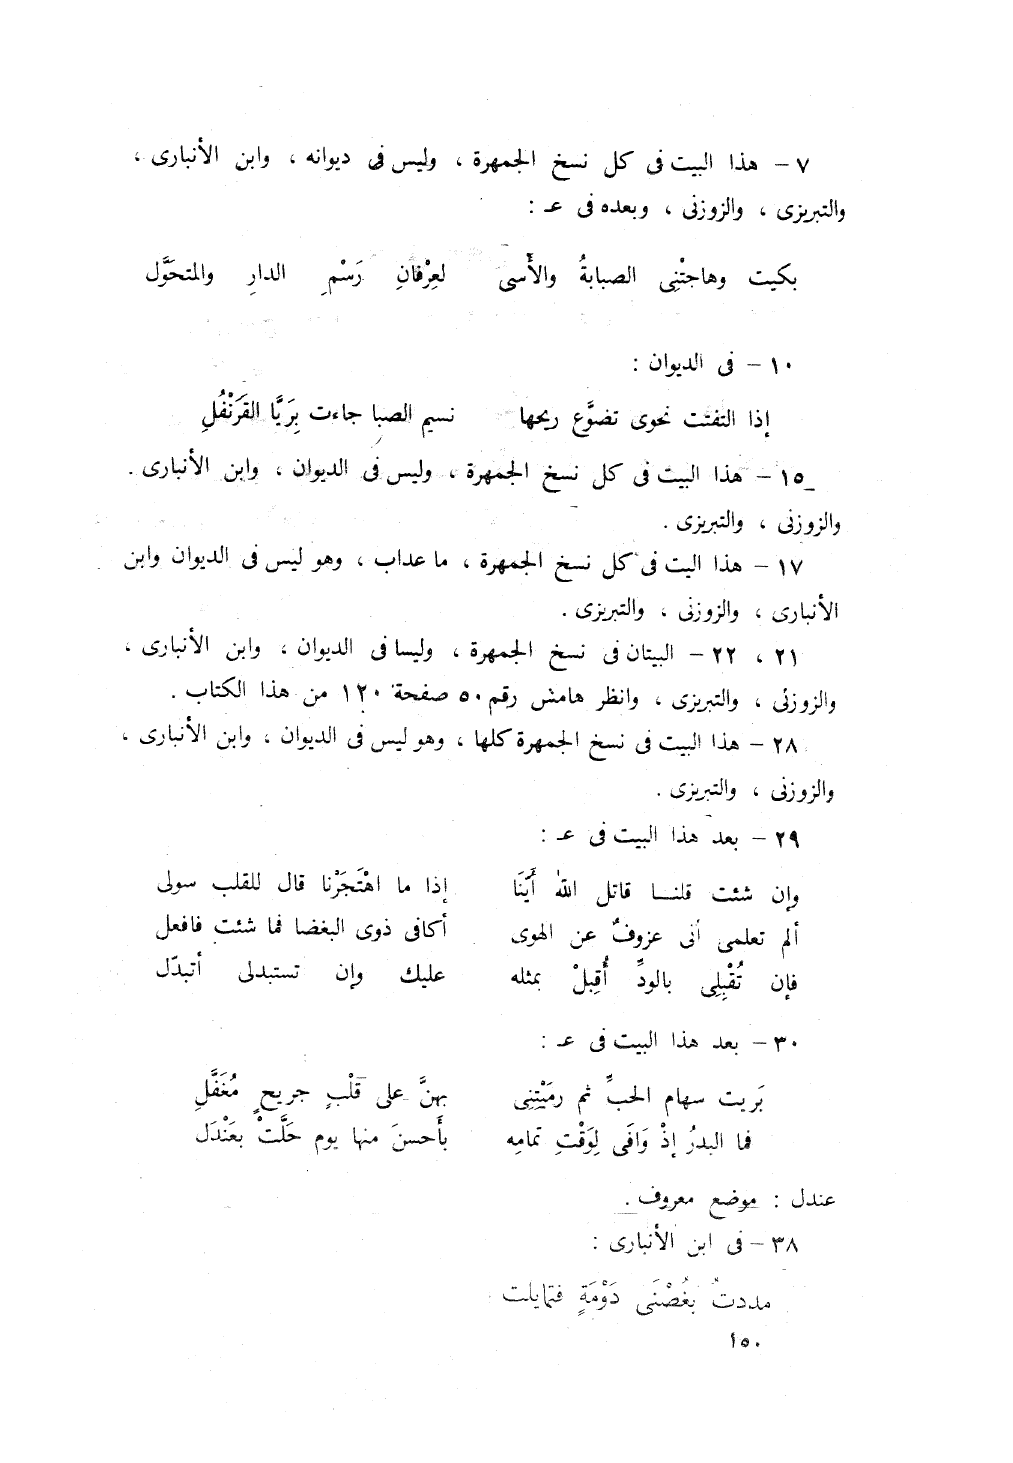 ٧ – هذا البيت فى كل نسخ الجمهرة ، وليس فى ديوانه ، وابن الأنبارى ،
والتبريزى ، والزوزنى ، وبعده فى عـ :
بكيت وهاجتْنِى الصبابةُ والأَسى لعِرْفانِ رَسْمِ الدارِ والمتحَوَّل
١٠ – فى الديوان :
إذا التفتت نحوى تضوَّع ريحها نسيم الصبا جاءت بِرَيَّا القَرَنْفُلِ
١٥ – هذا البيت فى كل نسخ الجمهرة ، وليس فى الديوان ، وابن الأنبارى .
والزوزنى ، والتبريزى .
١٧ – هذا اليت فى كل نسخ الجمهرة ، ما عداب ، وهو ليس فى الديوان وابن
الأنبارى ، والزوزنى ، والتبريزى .
٢١ ، ٢٢ – البيتان فى نسخ الجمهرة ، وليسا فى الديوان ، وابن الأنبارى ،
والزوزنى ، والتبريزى ، وانظر هامش رقم ٥٠ صفحة ١٢٠ من هذا الكتاب .
٢٨ – هذا البيت فى نسخ الجمهرة كلها ، وهو ليس فى الديوان ، وابن الأنبارى ،
والزوزنى ، والتبريزى .
٢٩ – بعد هذا البيت فى عـ :
وإن شئت قلنـــا قاتل اللهُ أَيَّنَا إذا ما اهْتَجَرْنا قال للقلب سولى
ألم تعلمى أنى عزوفٌ عن الهوى أكافى ذوى البغضا فما شئت فافعل
فإن تُقْبِلِى بالودِّ أُقِبلْ بمثله عليك وإن تستبدلى أتبدّل
٣٠ – بعد هذا البيت فى عـ :
بَريت سهام الحبِّ ثم رميْتِنِى بهنَّ على قَلْبٍ جريحٍ مُغَفَّلِ
فما البدرُ إذْ وَافَى لِوَقْتِ تمامِه بأَحسنَ منها يوم حَلَّتْ بعَنْدَل
عندل : موضع معروف .
٣٨ – فى ابن الأنبارى :
مددتُ بغُصْنَى دَوْمَةٍ فتمايلت
١٥٠